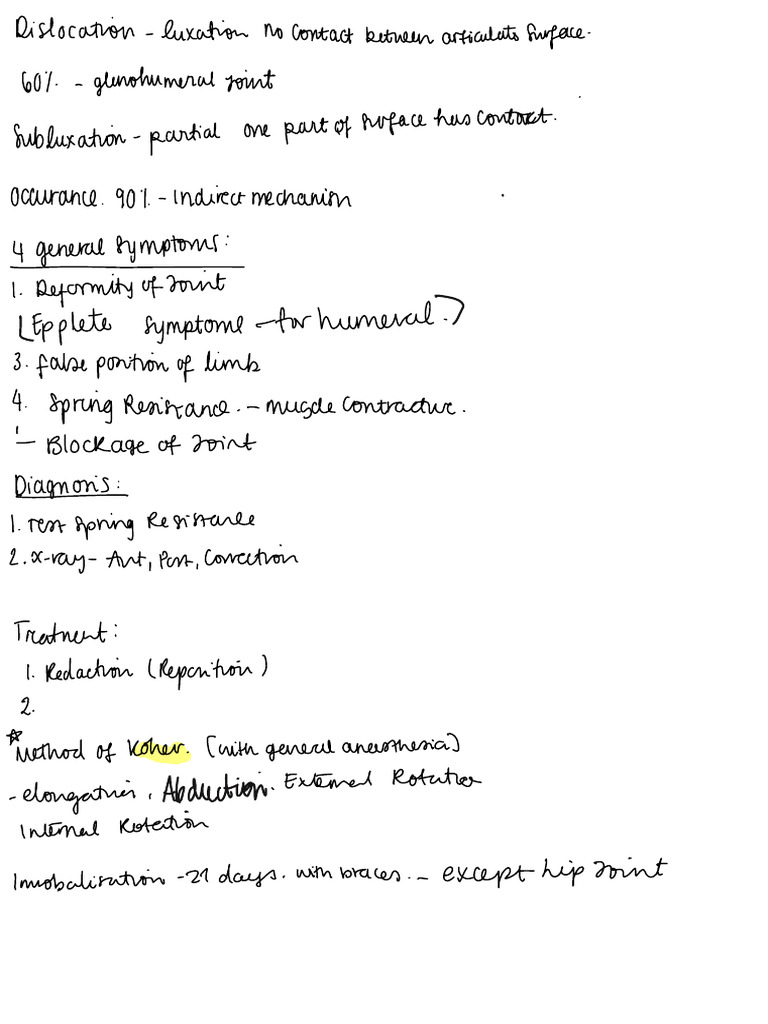 Dislocation - luxation No contact between articulate surface.
60% - glenohumeral joint
Subluxation - partial one part of surface has contact.
Occurance. 90% - Indirect mechanism
4 general symptoms:
1. Deformity of Joint
[Epplete symptome - for humeral.]
3. false position of limb
4. Spring Resistance. - muscle contracture.
- Blockage of Joint
Diagnosis:
1. Test Spring Resistance
2. x-ray - Ant, Post, Correction
Treatment:
1. Redaction (Reposition)
2.
☆ Method of Koher. [with general anaesthesia]
- elongation, Abduction. External Rotation
Internal Rotation
Immobalisation - 21 days. with braces. - except hip Joint